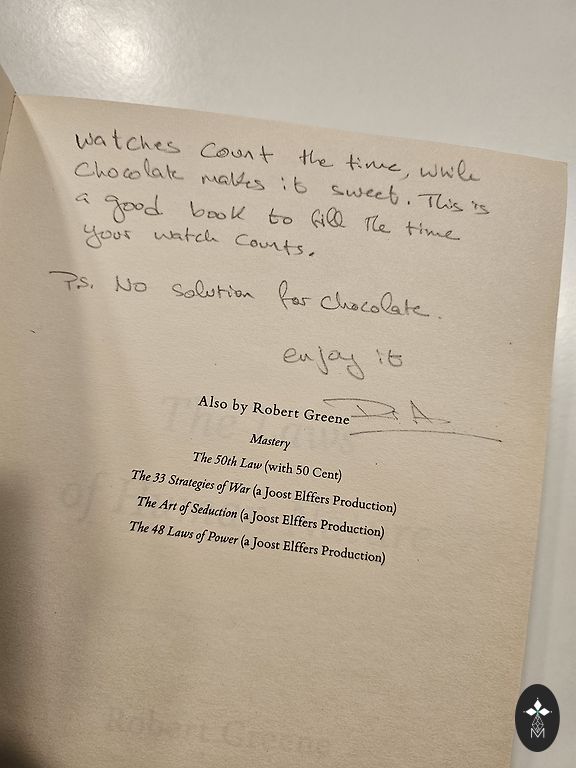 watches count the time, while
chocolate makes it sweet. This is
a good book to fill the time
your watch counts.
P.S. No solution for chocolate.
enjoy it
Also by Robert Greene
Mastery
The 50th Law (with 50 Cent)
The 33 Strategies of War (a Joost Elffers Production)
The Art of Seduction (a Joost Elffers Production)
The 48 Laws of Power (a Joost Elffers Production)
The Laws
of
Robert Greene
M